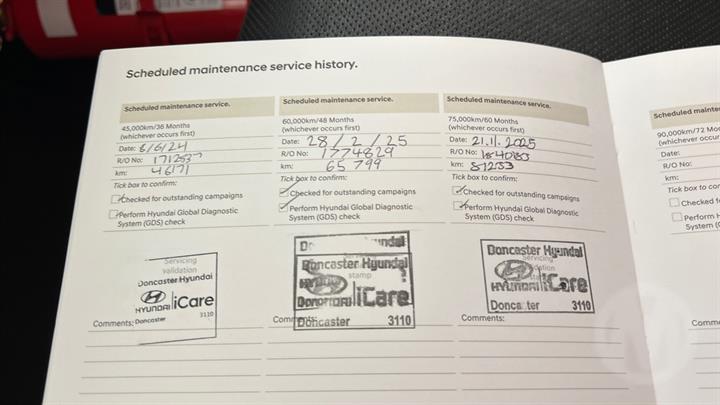 Scheduled maintenance service history.
Scheduled maintenance service.
45,000km/36 Months
(whichever occurs first)
Date: 6/6/24
R/O No:
km: 46171
Tick box to confirm:
Checked for outstanding campaigns
Perform Hyundai Global Diagnostic
System (GDS) check
Servicing
validation
Doncaster Hyundai
HYUNDAI iCare
Doncaster 3110
Comments:
Scheduled maintenance service.
60,000km/48 Months
(whichever occurs first)
Date: 28/2/25
R/O No: 1774829
km: 65799
Tick box to confirm:
Checked for outstanding campaigns
Perform Hyundai Global Diagnostic
System (GDS) check
Doncaster Hyundai
stamp
iCare
Doncaster 3110
Scheduled maintenance service.
75,000km/60 Months
(whichever occurs first)
Date: 21.11.2025
R/O No:
km: 81253
Tick box to confirm:
Checked for outstanding campaigns
Perform Hyundai Global Diagnostic
System (GDS) check
Doncaster Hyundai
Servicing
HYUNDAI iCare
3110
Comments:
Scheduled
90,000km/72
(whichever
Date:
R/O No:
km:
Tick box to
Checked
Perform
System